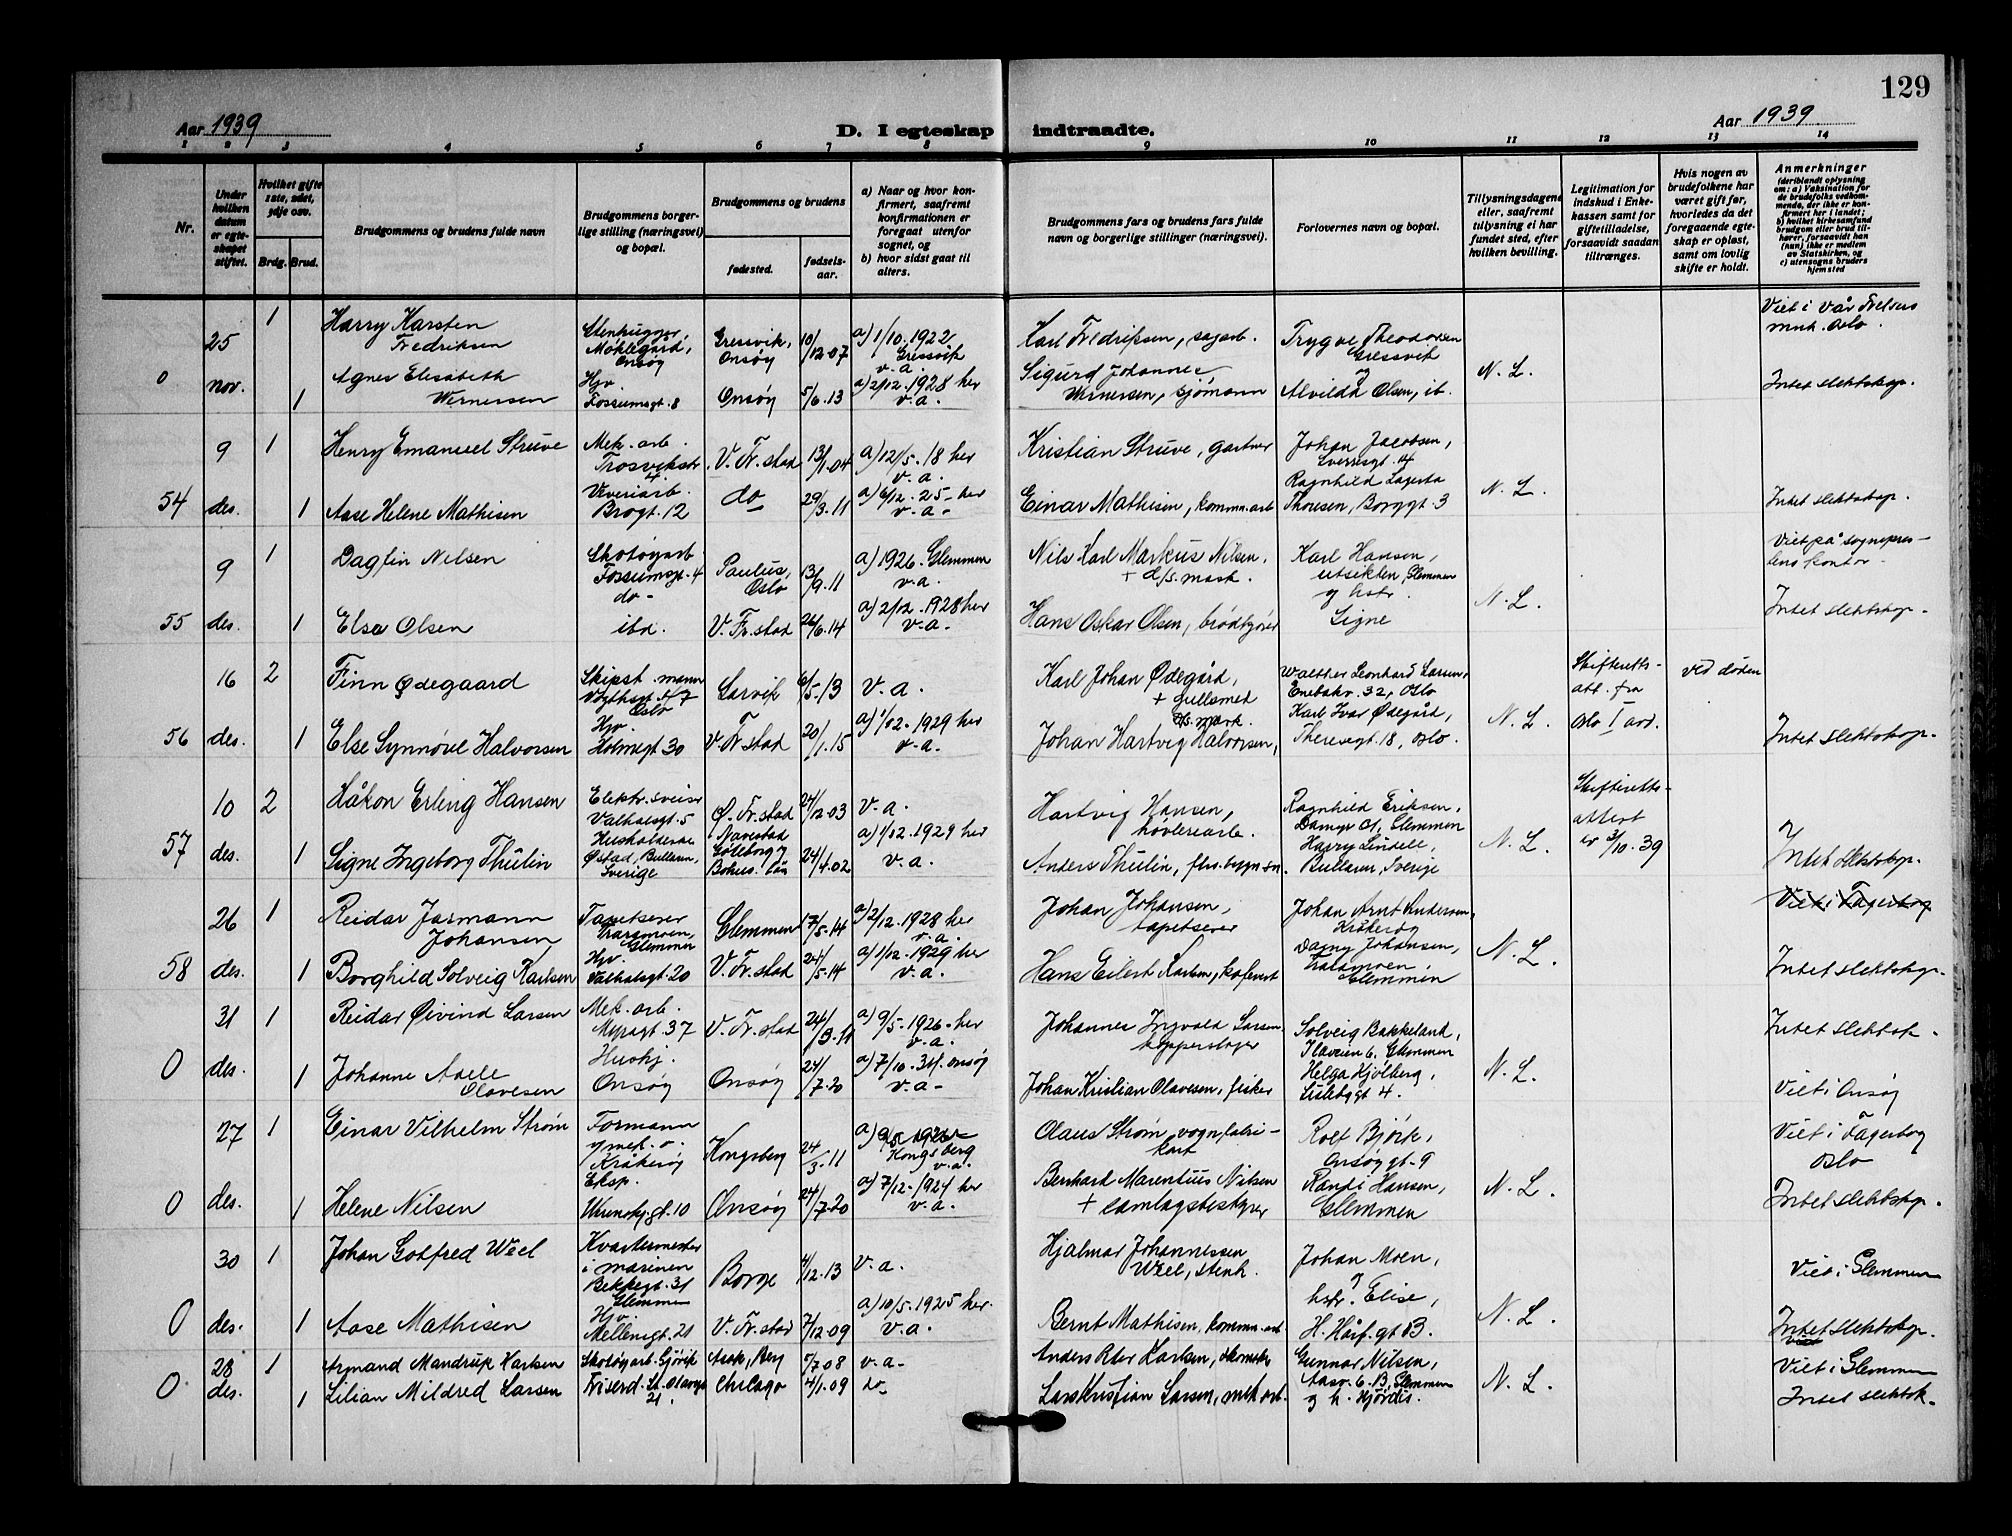 129
Aar 1939
D. I egteskap indtraadte.
Aar 1939
1 2 3 4 5 6 7 8 9 10 11 12 13 14
Nr.
Under hvilken datum er egteskapet stiftet.
Hvilket gifte 1ste, 2det, 3dje osv.
Brdg. Brud.
Brudgommens og brudens fulde navn
Brudgommens borgerlige stilling (næringsvei) og bopæl.
Brudgommens og brudens
fødested.
fødselsaar.
a) Naar og hvor konfirmert, saafremt konfirmationen er foregaat utenfor sognet, og
b) hvor sidst gaat til alters.
Brudgommens fars og brudens fars fulde navn og borgerlige stillinger (næringsvei).
Forlovernes navn og bopæl.
Tillysningsdagene eller, saafremt tillysning ei har fundet sted, efter hvilken bevilling.
Legitimation for indskud i Enkekassen samt for giftetilladelse, forsaavidt saadan tiltrænges.
Hvis nogen av brudefolkene har været gift før, hvorledes da det foregaaende egteskap er opløst, samt om lovlig skifte er holdt.
Anmerkninger
(deriblandt oplysning om: a) Vaksination for de brudefolks vedkommende, der ikke er konfirmert her i landet; b) hvilket kirkesamfund brudgom eller brud tilhører, forsaavidt han (hun) ikke er medlem av Statskirken, og c) utensogns bruders hjemsted
0 25 nov.
1 Harry Karsten Fredriksen
Stenhugger, Møklegård, Onsøy
Gressvik, Onsøy
10/12.07
a) 1/10.1922 Gressvik v.a.
Karl Fredriksen, sagarb.
Trygve Theodorsen Gressvik
Viet i Vår Frelsers menh. Oslo.
1 Agnes Elisabeth Wernersen
Hjv. Fossumsgt. 8
Onsøy
5/6.13
a) 2/12.1928 her v.a.
Sigurd Johannes Wernersen, sjømann
og Alvilda Olsen, ib.
N. L.
Intet slektskap.
54 9 des.
1 Henry Emanuel Struve
Mek. arb. Trosvikstr. 4.
V. Fr.stad
13/1.04
a) 12/5.18 her v.a.
Kristian Struve, gartner
Johan Jacobsen, Sverresgt. 14
1 Aase Helene Mathisen
Veveriarb. Brogt. 12
do
29/3.11
a) 6/12.25 her v.a.
Einar Mathisen, komm.arb
Ragnhild Lagerta Thoresen, Borggt. 3
N. L.
Intet slektskap.
55 9 des.
1 Dagfin Nilsen
Skotøyarb. Fossumsgt. 4
Paulus, Oslo
13/9.11
a) 1926. Glemmen v.a.
Nils Karl Markus Nilsen, + d/s. mask.
Karl Hansen, Utsikten, Glemmen
Viet på sogneprestens kontor.
1 Else Olsen
do - ibd.
V. Fr.stad
26/6.14
a) 2/12.1928 her v.a.
Hans Oskar Olsen, brødkjører
og hstr. Signe
N. L.
Intet slektskap.
56 16 des.
2 Finn Ødegaard
Skipst.mann Vogtsgt. 47 Oslo
Larvik
6/5.13
v.a.
Karl Johan Ødegård, + gullsmed
Walther Leonhard Larsen, Enebakv. 32, Oslo
Skifteretts-att. fra Oslo I avd.
ved døden
1 Else Synnøve Halvorsen
Hjv. Holmsgt. 30
V. Fr.stad
20/1.15
a) 1/12.1929 her v.a.
Johan Hartvig Halvorsen, d/s. mask.
Karl Ivar Ødegård, Theresegt. 18, Oslo.
N. L.
Intet slektskap.
57 10 des.
2 Håkon Erling Hansen
Elektr. sveiser Valhalsgt. 5
Ø. Fr.stad
24/12.03
v.a.
Hartvig Hansen, høvleriarb.
Ragnhild Eriksen, Damyr 01, Glemmen
Skifteretts-attest av 3/10.39
1 Signe Ingeborg Thulin
Husholderske Østad, Bullaren, Sverige
Navestad Göteborg og Bohus. Län
24/4.02
a) 1/12.1929 her v.a.
Anders Thulin,
Harry Lindell, Bullaren, Sverige
N. L.
Intet slektskap.
58 26 des.
1 Reidar Jarmann Johansen
Tapetserer Traramoen, Glemmen
Glemmen
17/5.14
a) 2/12.1928 her v.a.
Johan Johansen, tapetserer
Johan Arnt Andersen, Kråkerøy
Viet i Fagerborg
1 Borghild Solveig Karlsen
Hjv. Valhalsgt. 20
V. Fr.stad
24/5.14
a) 1/12.1929 her v.a.
Hans Eilert Karlsen,
Dagny Johansen, Traramoen, Glemmen
N. L.
Intet slektskap.
0 31 des.
1 Reidar Øivind Larsen
Mek. arb. Myragt. 37
V. Fr.stad
24/3.11
a) 9/5.1926 her v.a.
Johannes Ingvald Larsen kopperslager
Solveig Bakkeland, Ilaveien 6. Glemmen
Intet slektsk.
1 Johanne Aasle Olavesen
Hushj. Onsøy
Onsøy
24/7.20
a) 7/10.34. Onsøy v.a.
Johan Kristian Olavesen, fisker
Helga Hjölberg, Lislebygt 4.
N. L.
Viet i Onsøy
0 27 des.
1 Einar Vilhelm Strøm
Formann v/ mek. v. Kråkerøy
Kongsberg
24/3.11
a) 1926 Kongsberg v.a.
Olaus Strøm, vognfabrikant
Rolf Björk, Onsøygt. 9
Viet i Fagerborg Oslo
1 Helene Nilsen
Eksp. Wrenskg.gt. 10
Onsøy
24/7.20
a) 7/12.1924 her v.a.
Bernhard Marentius Nilsen + samlagsbestyrer
Randi Hansen, Glemmen
N. L.
Intet slektskap.
0 30 des.
1 Johan Gotfred Weel
Kvartermester i marinen Bekkegt. 31 Glemmen
Borge
4/12.13
v.a.
Hjalmar Johannessen Weel, stenh.
Johan Moen,
Viet i Glemmen
1 Aase Mathisen
Hjv. Mellemgt. 21
V. Fr.stad
7/12.09
a) 10/5.1925 her. v.a.
Bernt Mathisen, komm.arb
og hstr. Elise, H. Hårf.gt B.
N. L.
Intet slektskap.
0 28 des.
1 Armand Mandrup Karlsen
Skotøyarb. Gjövik
Ask, Berg
5/7.08
v.a.
Anders Peter Karlsen, skomaker
Gunnar Nilsen, Aasv. 6. B, Glemmen
Viet i Glemmen
1 Lilian Mildred Larsen
Friserd. St. Olavsgt 21.
Chicago
4/1.09
do
Lars Kristian Larsen, mek arb.
og h. Hjørdis.
N. L.
Intet slektsk.